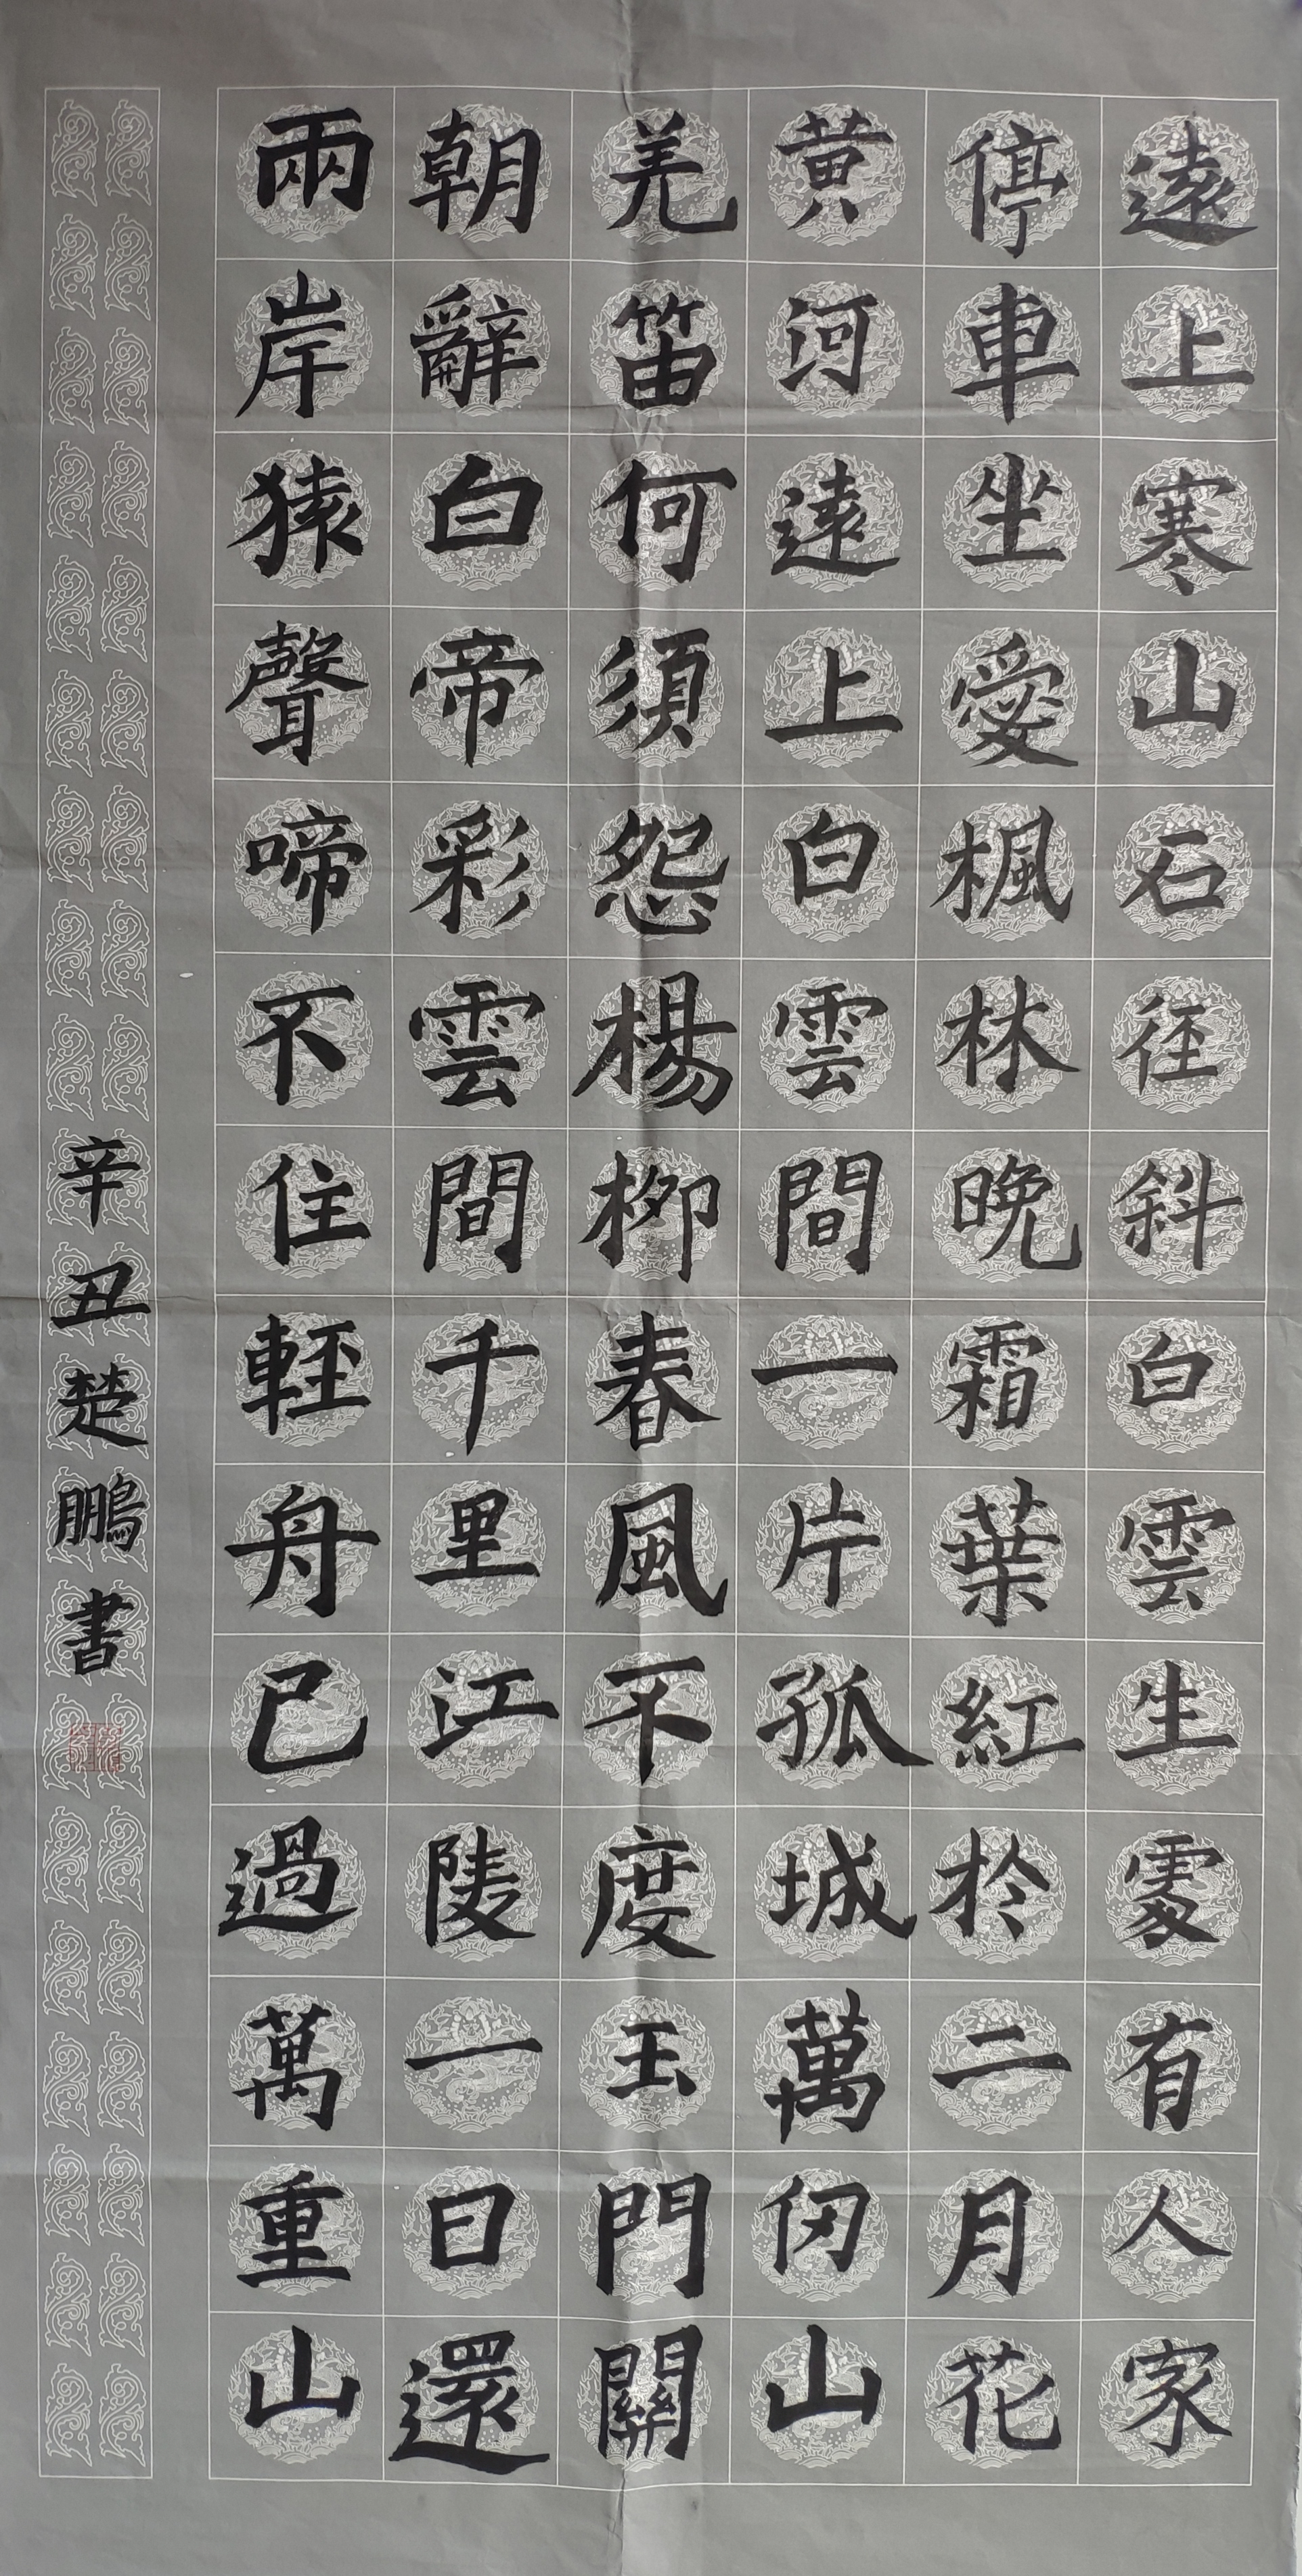 遠上寒山石徑斜白雲生處有人家
停車坐愛楓林晚霜葉紅於二月花
黃河遠上白雲間一片孤城萬仞山
羌笛何須怨楊柳春風不度玉門關
朝辭白帝彩雲間千里江陵一日還
兩岸猿聲啼不住輕舟已過萬重山
辛丑楚鵬書